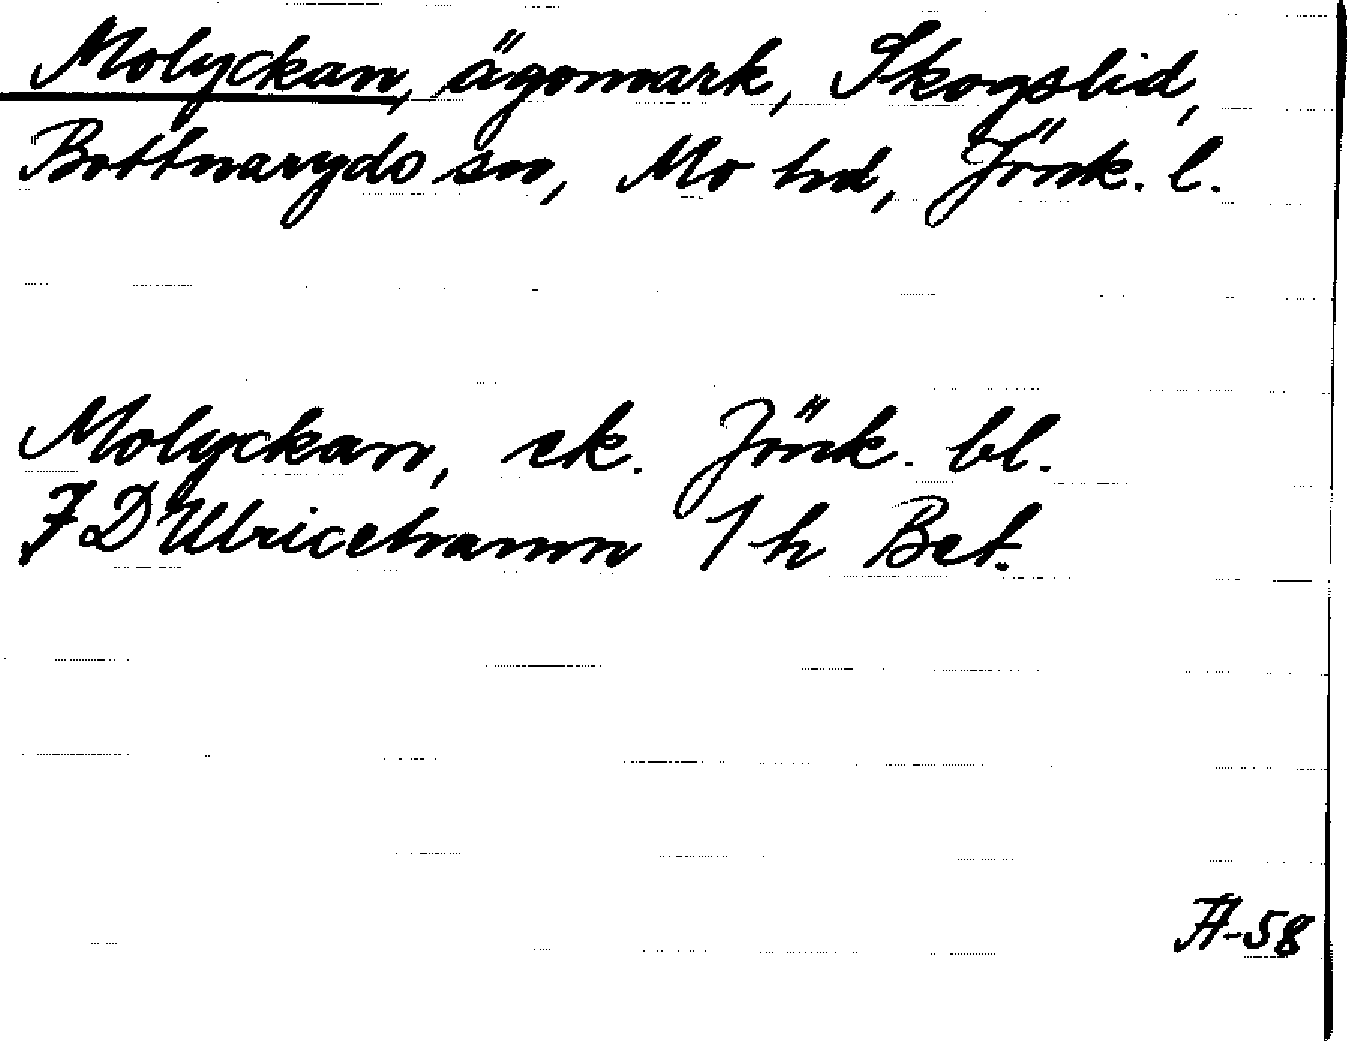 Molyckan, ägomark, Skogslid,
Bottnaryds sn, Mo hd, Jönk. l.
Molyckan, ek. Jönk. bl.
7 D Ulricehamn 1 h Bet.
-58